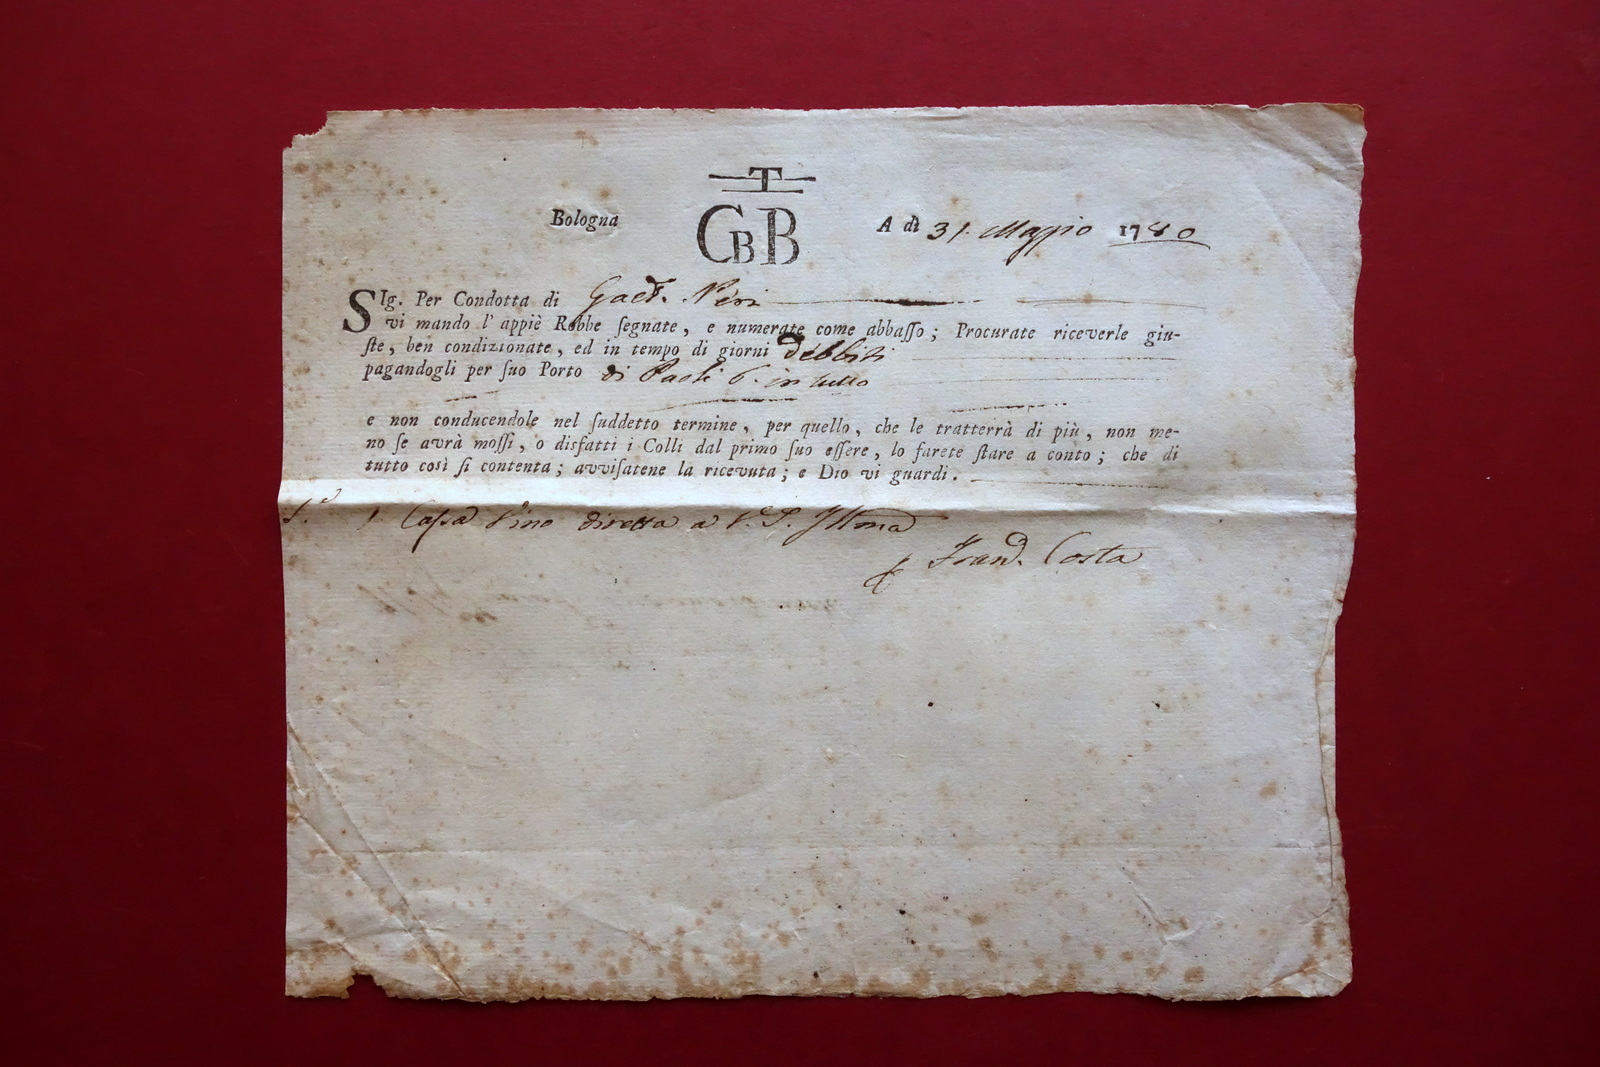 T
Bologna CBB A dì 31. Maggio 1780
SIg. Per Condotta di Gaet. Neri
vi mando l' appiè Robbe ſegnate, e numerate come abbaſſo; Procurate riceverle giu-
ſte, ben condizionate, ed in tempo di giorni debbiti
pagandogli per ſuo Porto di Paoli 6. in tutto
e non conducendole nel ſuddetto termine, per quello, che le tratterrà di più, non me-
no se avrà moſſi, o disfatti i Colli dal primo ſuo eſſere, lo farete ſtare a conto; che di
tutto così ſi contenta; avviſatene la ricevuta; e Dio vi guardi.
1 Caſsa Vino diretta a V. S. Illma
Franc. Costa